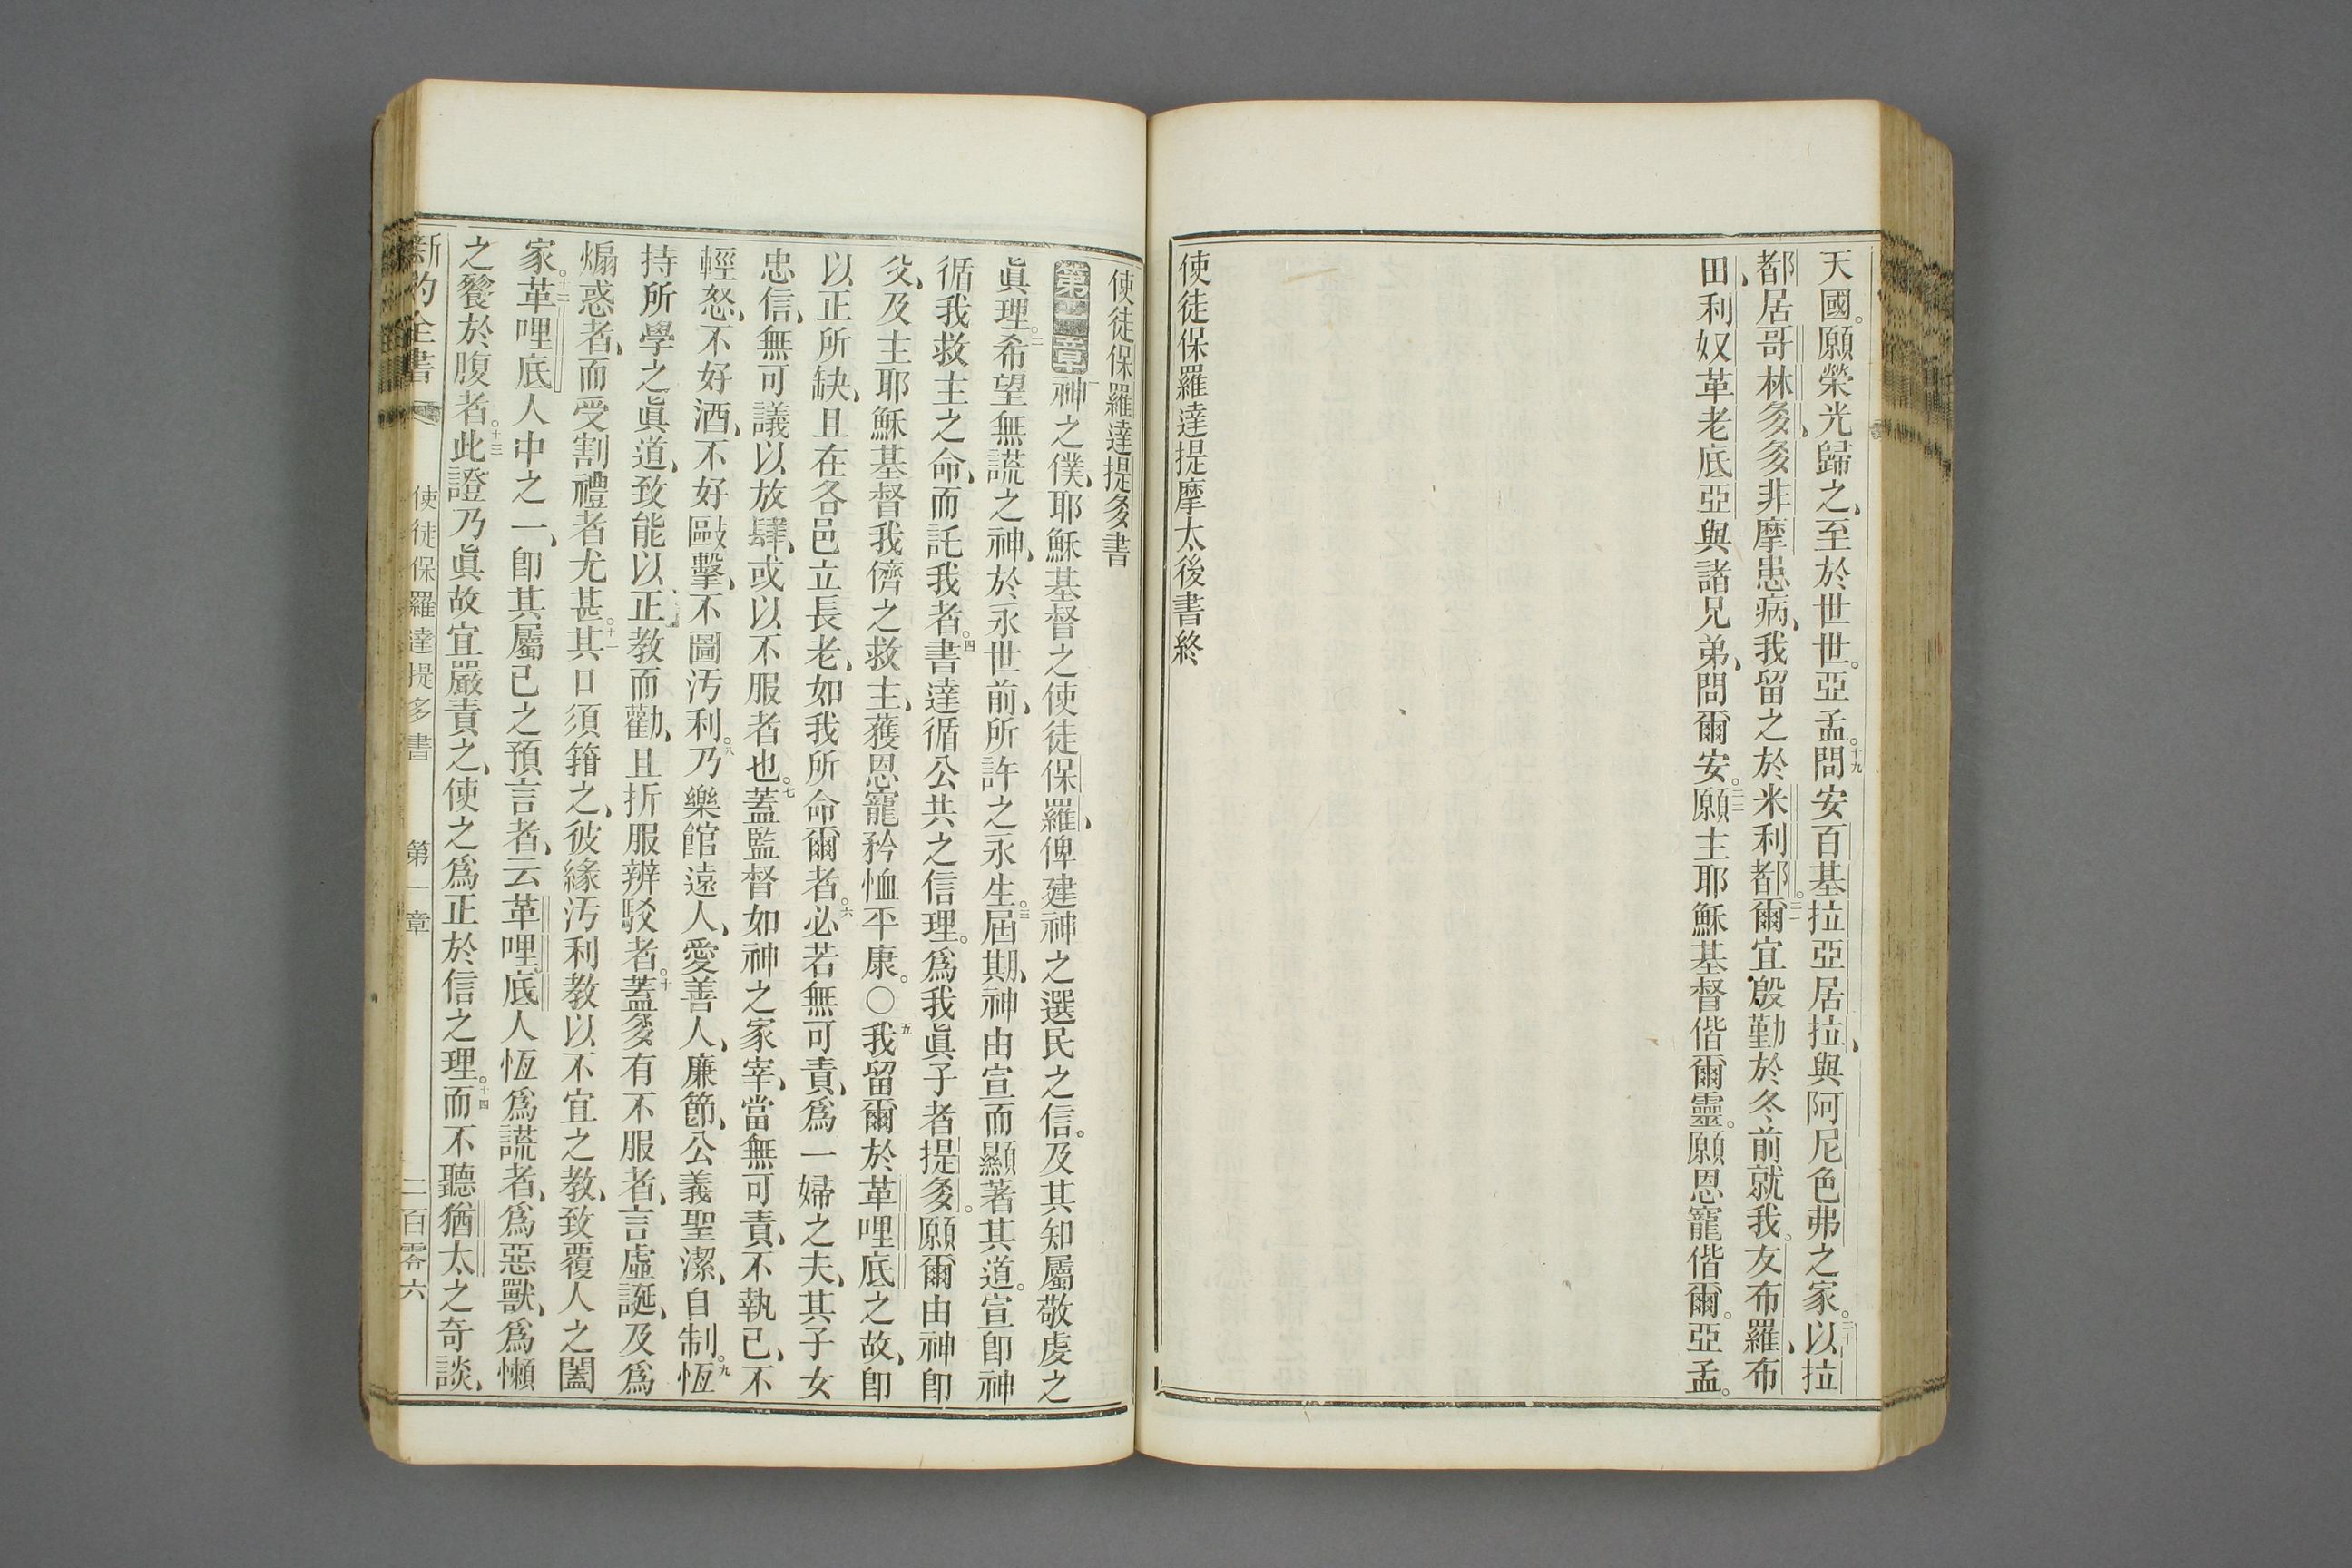 天國。願榮光歸之、至於世世。亞孟。十九問安百基拉亞居拉、與阿尼色弗之家。二十以拉
都居哥林、多多非摩患病、我留之於米利都。二一爾宜殷勤於冬前就我。友布羅、布
田、利奴革老底亞與諸兄弟、問爾安。二二願主耶穌基督偕爾靈。願恩寵偕爾。亞孟。
使徒保羅達提摩太後書終
使徒保羅達提多書
第一章 一神之僕、耶穌基督之使徒保羅、俾建神之選民之信。及其知屬敬虔之
眞理。二希望無謊之神、於永世前、所許之永生。三屆期、神由宣而顯著其道。宣卽神
循我救主之命、而託我者。四書達循公共之信理。爲我眞子者提多。願爾由神卽
父、及主耶穌基督我儕之救主、獲恩寵矜恤平康。〇五我留爾於革哩底之故、卽
以正所缺、且在各邑立長老、如我所命爾者。六必若無可責、爲一婦之夫、其子女
忠信、無可議以放肆、或以不服者也。七蓋監督如神之家宰、當無可責、不執己、不
輕怒、不好酒、不好毆擊、不圖汚利。八乃樂館遠人、愛善人、廉節、公義聖潔、自制。九恆
持所學之眞道、致能以正教而勸、且折服辨駁者。十蓋多有不服者、言虛誕、及爲
煽惑者、而受割禮者尤甚。十一其口須箝之、彼緣汚利教以不宜之教、致覆人之闔
家。十二革哩底人中之一、卽其屬己之預言者、云革哩底人恆爲謊者、爲惡獸、爲懶
之饕於腹者。十三此證乃眞故宜嚴責之、使之爲正於信之理。十四而不聽猶太之奇談、
新約全書 使徒保羅達提多書 第一章 二百零六